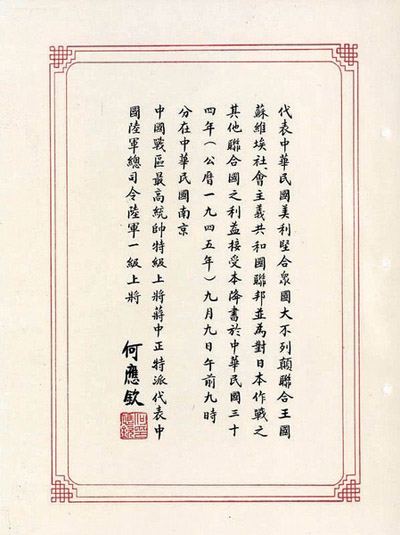 代表中華民國美利堅合眾國大不列顛聯合王國
蘇維埃社會主義共和國聯邦並為對日本作戰之
其他聯合國之利益接受本降書於中華民國三十
四年(公曆一九四五年)九月九日午前九時
分在中華民國南京
中國戰區最高統帥特級上將蔣中正特派代表中
國陸軍總司令陸軍一級上將
何應欽
何應欽